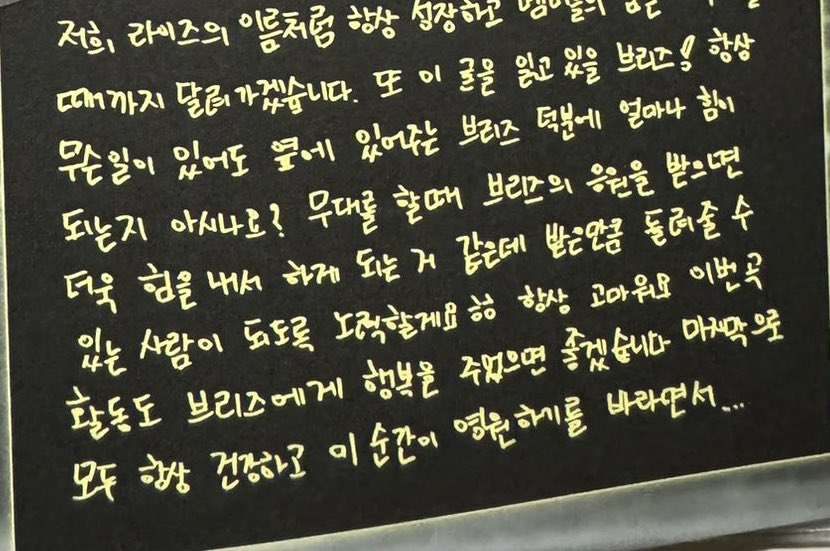 저희, 라이즈의 이름처럼 항상 성장하고 멤버들의
때까지 달려가겠습니다. 또 이 글을 읽고 있을 브리즈!! 항상
무슨일이 있어도 옆에 있어주는 브리즈 덕분에 얼마나 힘이
되는지 아시나요? 무대를 할때 브리즈의 응원을 받으면
더욱 힘을 내서 하게 되는 거 같은데 받은만큼 돌려줄 수
있는 사람이 되도록 노력할게요 ㅎㅎ 항상 고마워요 이번 곡
활동도 브리즈에게 행복을 주었으면 좋겠습니다 마지막으로
모두 항상 건강하고 이 순간이 영원하기를 바라면서...